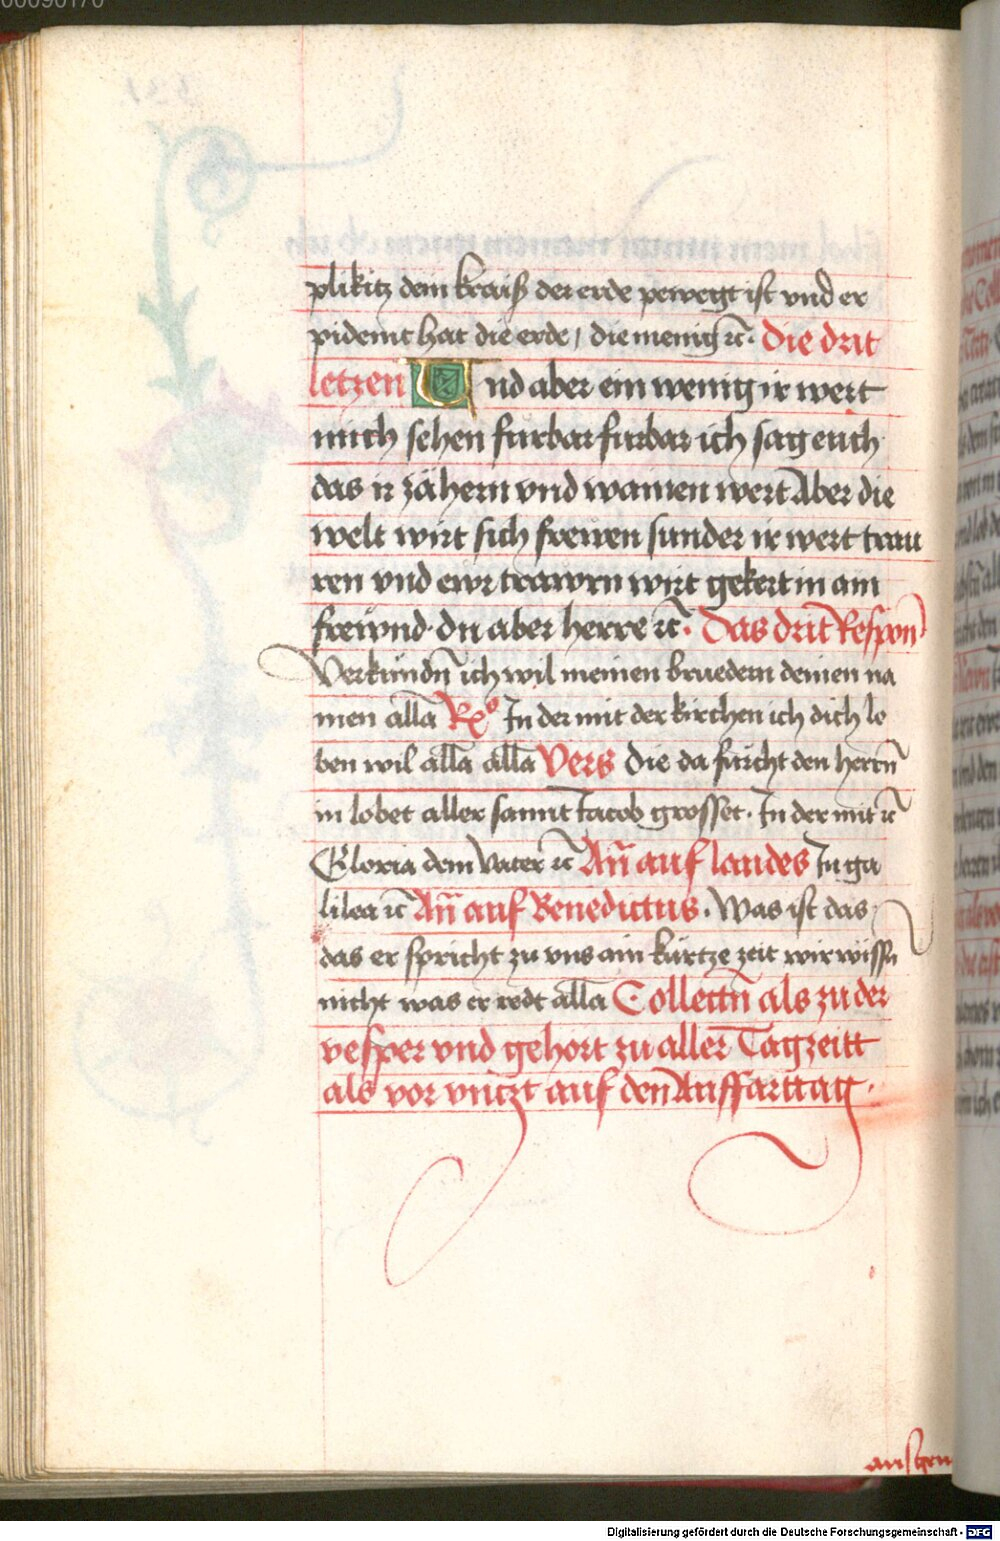 plikitz dein kraiß der erde pewegt ist vnd er
pidemt hat die erde / die menig ꝛc̄. Die drit
letzen Vnd aber ein wenig ir wert
mich sehen furbar furbar ich sag euch
das ir zähern vnd wainen wert Aber die
welt wirt sich frewen sunder ir wert trau
ren vnd ewr trawrn wirt gekert in ain
frewnd · du aber herre ꝛc̄. Das drit Respon
Verkündn̄ ich wil meinen bruedern deinen na
men all̄a Rx° In der mit der kirchen ich dich lo
ben wil all̄a all̄a Vers Die da fürcht den herrn̄
in lobet aller samnt Jacob grosset. In der mit ꝛc̄
Gloria dem Vater ꝛc̄ An̄ auf laudes In ga
lilea ꝛc̄ An̄ auf Benedictus. Was ist das
das er spricht zu vns ain kürtze zeit wir wissn̄
nicht was er redt all̄a Collectn̄ als zu der
vesper vnd gehort zu aller Tagzeitt
als vor vntzt auf den Auffarttag.
Digitalisierung gefördert durch die Deutsche Forschungsgemeinschaft - DFG